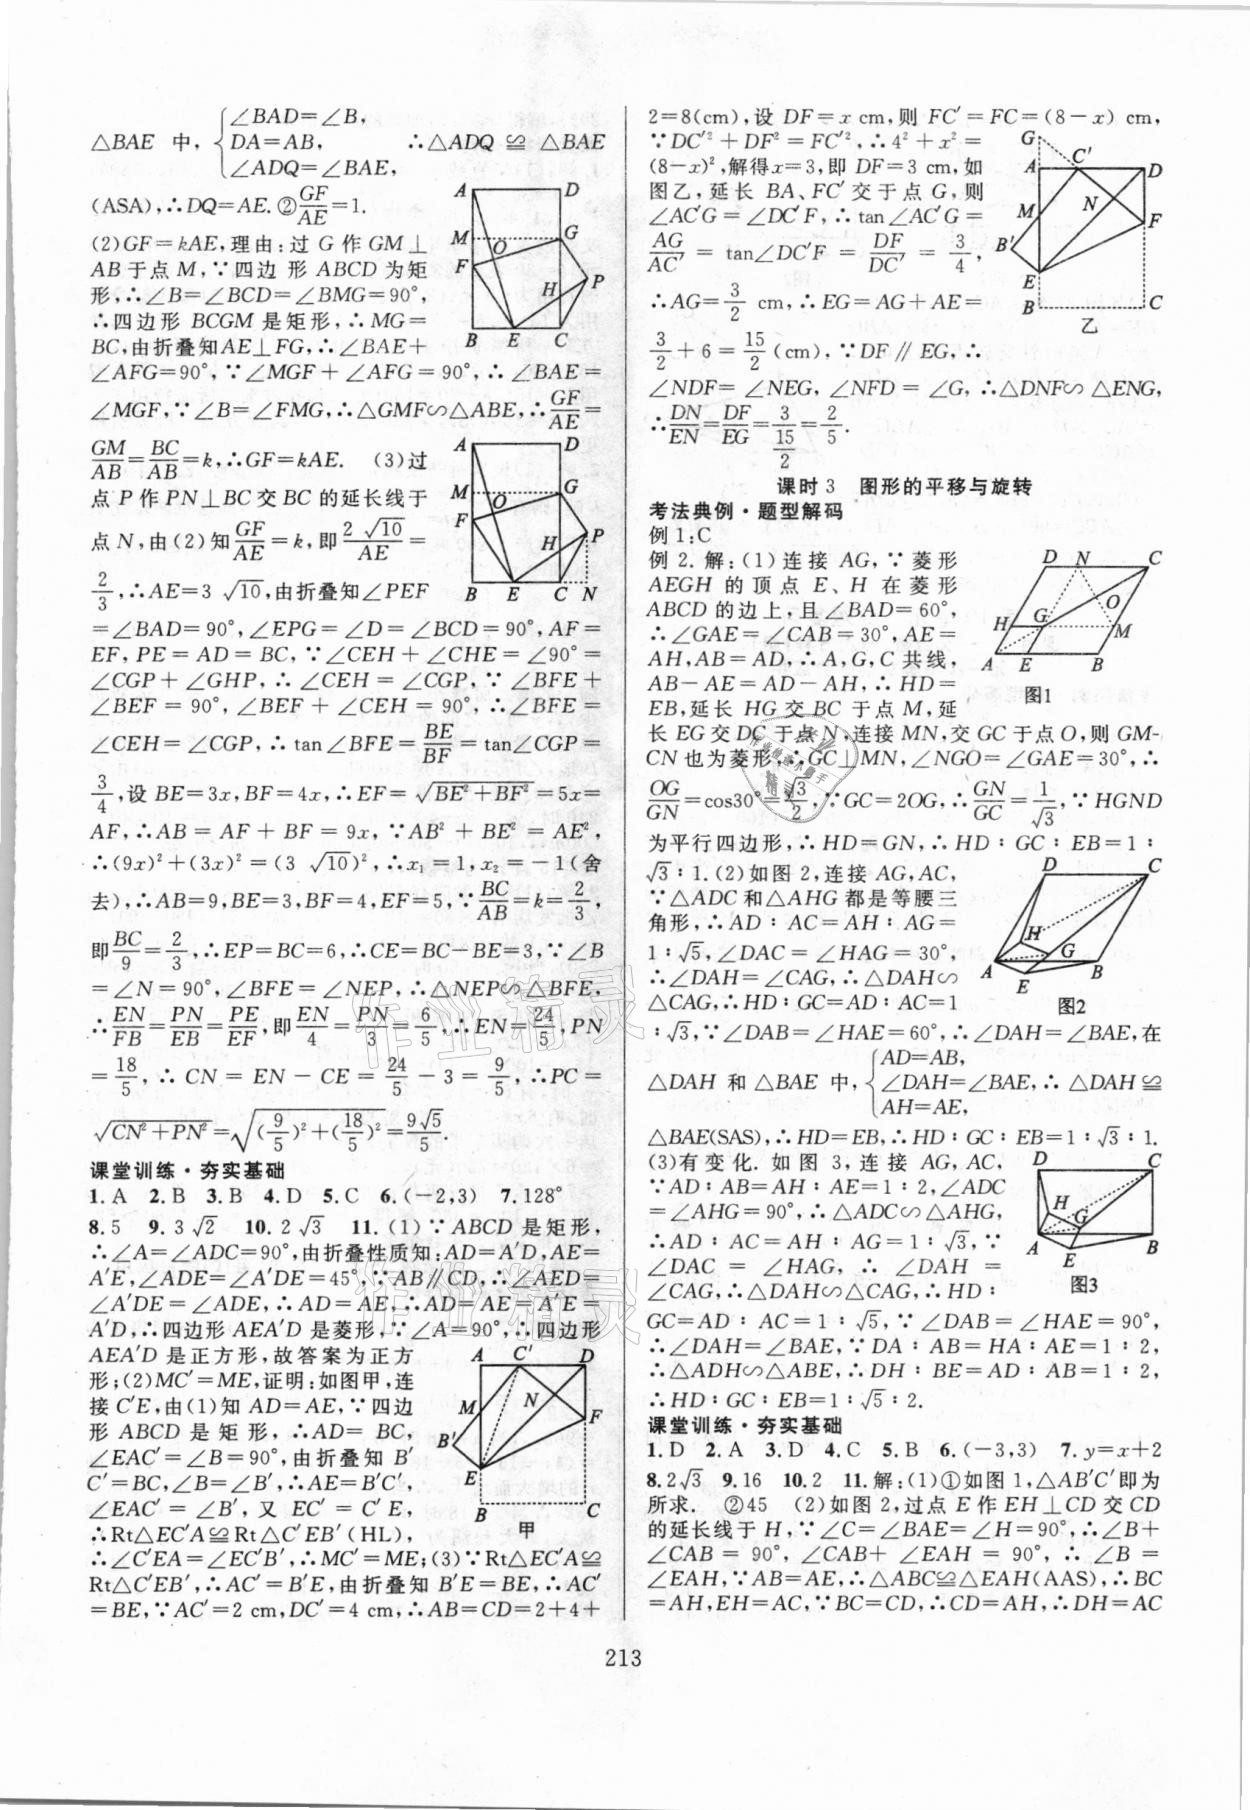 △BAE 中,{∠BAD=∠B,
DA=AB,
∠ADQ=∠BAE, ∴△ADQ≌△BAE
(ASA),∴DQ=AE. ②GF/AE=1.
(2)GF=kAE,理由:过 G 作 GM⊥
AB于点 M,∵四边形 ABCD 为矩
形,∴∠B=∠BCD=∠BMG=90°,
∴四边形 BCGM 是矩形,∴MG=
BC,由折叠知AE⊥FG,∴∠BAE+
∠AFG=90°,∵∠MGF+∠AFG=90°,∴∠BAE=
∠MGF,∵∠B=∠FMG,∴△GMF∽△ABE,∴GF/AE=
GM/AB=BC/AB=k,∴GF=kAE. (3)过
点 P 作 PN⊥BC 交 BC 的延长线于
点 N,由(2)知GF/AE=k,即2√10/AE=
2/3,∴AE=3√10,由折叠知∠PEF
=∠BAD=90°,∠EPG=∠D=∠BCD=90°,AF=
EF,PE=AD=BC,∵∠CEH+∠CHE=∠90°=
∠CGP+∠GHP,∴∠CEH=∠CGP,∵∠BFE+
∠BEF=90°,∠BEF+∠CEH=90°,∴∠BFE=
∠CEH=∠CGP,∴tan∠BFE=BE/BF=tan∠CGP=
3/4,设 BE=3x,BF=4x,∴EF=√(BE²+BF²)=5x=
AF,∴AB=AF+BF=9x,∵AB²+BE²=AE²,
∴(9x)²+(3x)²=(3√10)²,∴x₁=1,x₂=-1(舍
去),∴AB=9,BE=3,BF=4,EF=5,∵BC/AB=k=2/3,
即BC/9=2/3,∴EP=BC=6,∴CE=BC-BE=3,∵∠B
=∠N=90°,∠BFE=∠NEP,∴△NEP∽△BFE,
∴EN/FB=PN/EB=PE/EF,即EN/4=PN/3=6/5,∴EN=24/5,PN
=18/5,∴CN=EN-CE=24/5-3=9/5,∴PC=
√(CN²+PN²)=√((9/5)²+(18/5)²)=9√5/5
课堂训练·夯实基础
1. A 2. B 3. B 4. D 5. C 6. (-2,3) 7. 128°
8. 5 9. 3√2 10. 2√3 11. (1)∵ABCD 是矩形,
∴∠A=∠ADC=90°,由折叠性质知:AD=A′D,AE=
A′E,∠ADE=∠A′DE=45°,∵AB∥CD,∴∠AED=
∠A′DE=∠ADE,∴AD=AE,∴AD=AE=A′E=
A′D,∴四边形 AEA′D 是菱形,∵∠A=90°,∴四边形
AEA′D 是正方形,故答案为正方
形;(2)MC′=ME,证明:如图甲,连
接 C′E,由(1)知 AD=AE,∵四边
形 ABCD 是矩形,∴AD=BC,
∠EAC′=∠B=90°,由折叠知 B′
C′=BC,∠B=∠B′,∴AE=B′C′,
∠EAC′=∠B′,又 EC′=C′E,
∴Rt△EC′A≌Rt△C′EB′(HL),
∴∠C′EA=∠EC′B′,∴MC′=ME;(3)∵Rt△EC′A≌
Rt△C′EB′,∴AC′=B′E,由折叠知 B′E=BE,∴AC′
=BE,∵AC′=2 cm,DC′=4 cm,∴AB=CD=2+4+
A D M G F O H P B E C
A D M G F O H P B E C N
A C′ D M N F B′ E B C
甲
2=8(cm),设 DF=x cm,则 FC′=FC=(8-x) cm,
∵DC′²+DF²=FC′²,∴4²+x²=
(8-x)²,解得x=3,即 DF=3 cm,如
图乙,延长 BA、FC′交于点 G,则
∠AC′G=∠DC′F,∴tan∠AC′G=
AG/AC′=tan∠DC′F=DF/DC′=3/4,
∴AG=3/2 cm,∴EG=AG+AE=
3/2+6=15/2(cm),∵DF∥EG,∴
∠NDF=∠NEG,∠NFD=∠G,∴△DNF∽△ENG,
∴DN/EN=DF/EG=3/(15/2)=2/5.
G C′ A D M N F B′ E B C
乙
课时 3 图形的平移与旋转
考法典例·题型解码
例 1:C
例 2. 解:(1)连接 AG,∵菱形
AEGH 的顶点 E、H 在菱形
ABCD 的边上,且∠BAD=60°,
∴∠GAE=∠CAB=30°,AE=
AH,AB=AD,∴A,G,C 共线,
AB-AE=AD-AH,∴HD=
EB,延长 HG 交 BC 于点 M,延
长 EG 交 DC 于点 N,连接 MN,交 GC 于点 O,则 GM-
CN也为菱形,∴GC⊥MN,∠NGO=∠GAE=30°,∴
OG/GN=cos30°=√3/2,∵GC=2OG,∴GN/GC=1/√3,∵HGND
为平行四边形,∴HD=GN,∴HD∶GC∶EB=1∶
√3∶1.(2)如图 2,连接 AG,AC,
∵△ADC 和△AHG 都是等腰三
角形,∴AD∶AC=AH∶AG=
1∶√5,∠DAC=∠HAG=30°,
∴∠DAH=∠CAG,∴△DAH∽
△CAG,∴HD∶GC=AD∶AC=1
∶√3,∵∠DAB=∠HAE=60°,∴∠DAH=∠BAE,在
△DAH 和△BAE 中,{AD=AB,
∠DAH=∠BAE,
AH=AE, ∴△DAH≌
△BAE(SAS),∴HD=EB,∴HD∶GC∶EB=1∶√3∶1.
(3)有变化. 如图 3,连接 AG,AC,
∵AD∶AB=AH∶AE=1∶2,∠ADC
=∠AHG=90°,∴△ADC∽△AHG,
∴AD∶AC=AH∶AG=1∶√3,∵
∠DAC=∠HAG,∴∠DAH=
∠CAG,∴△DAH∽△CAG,∴HD∶
GC=AD∶AC=1∶√5,∵∠DAB=∠HAE=90°,
∴∠DAH=∠BAE,∵DA∶AB=HA∶AE=1∶2,
∴△ADH∽△ABE,∴DH∶BE=AD∶AB=1∶2,
∴HD∶GC∶EB=1∶√5∶2.
D N C H G O M A E B
图1
D C H G A E B
图2
D C H G A E B
图3
课堂训练·夯实基础
1. D 2. A 3. D 4. C 5. B 6. (-3,3) 7. y=x+2
8. 2√3 9. 16 10. 2 11. 解:(1)①如图 1,△AB′C′即为
所求. ②45 (2)如图 2,过点 E 作 EH⊥CD 交 CD
的延长线于 H,∵∠C=∠BAE=∠H=90°,∴∠B+
∠CAB=90°,∠CAB+∠EAH=90°,∴∠B=
∠EAH,∵AB=AE,∴△ABC≌△EAH(AAS),∴BC
=AH,EH=AC,∵BC=CD,∴CD=AH,∴DH=AC
213
作业精灵
作业精灵